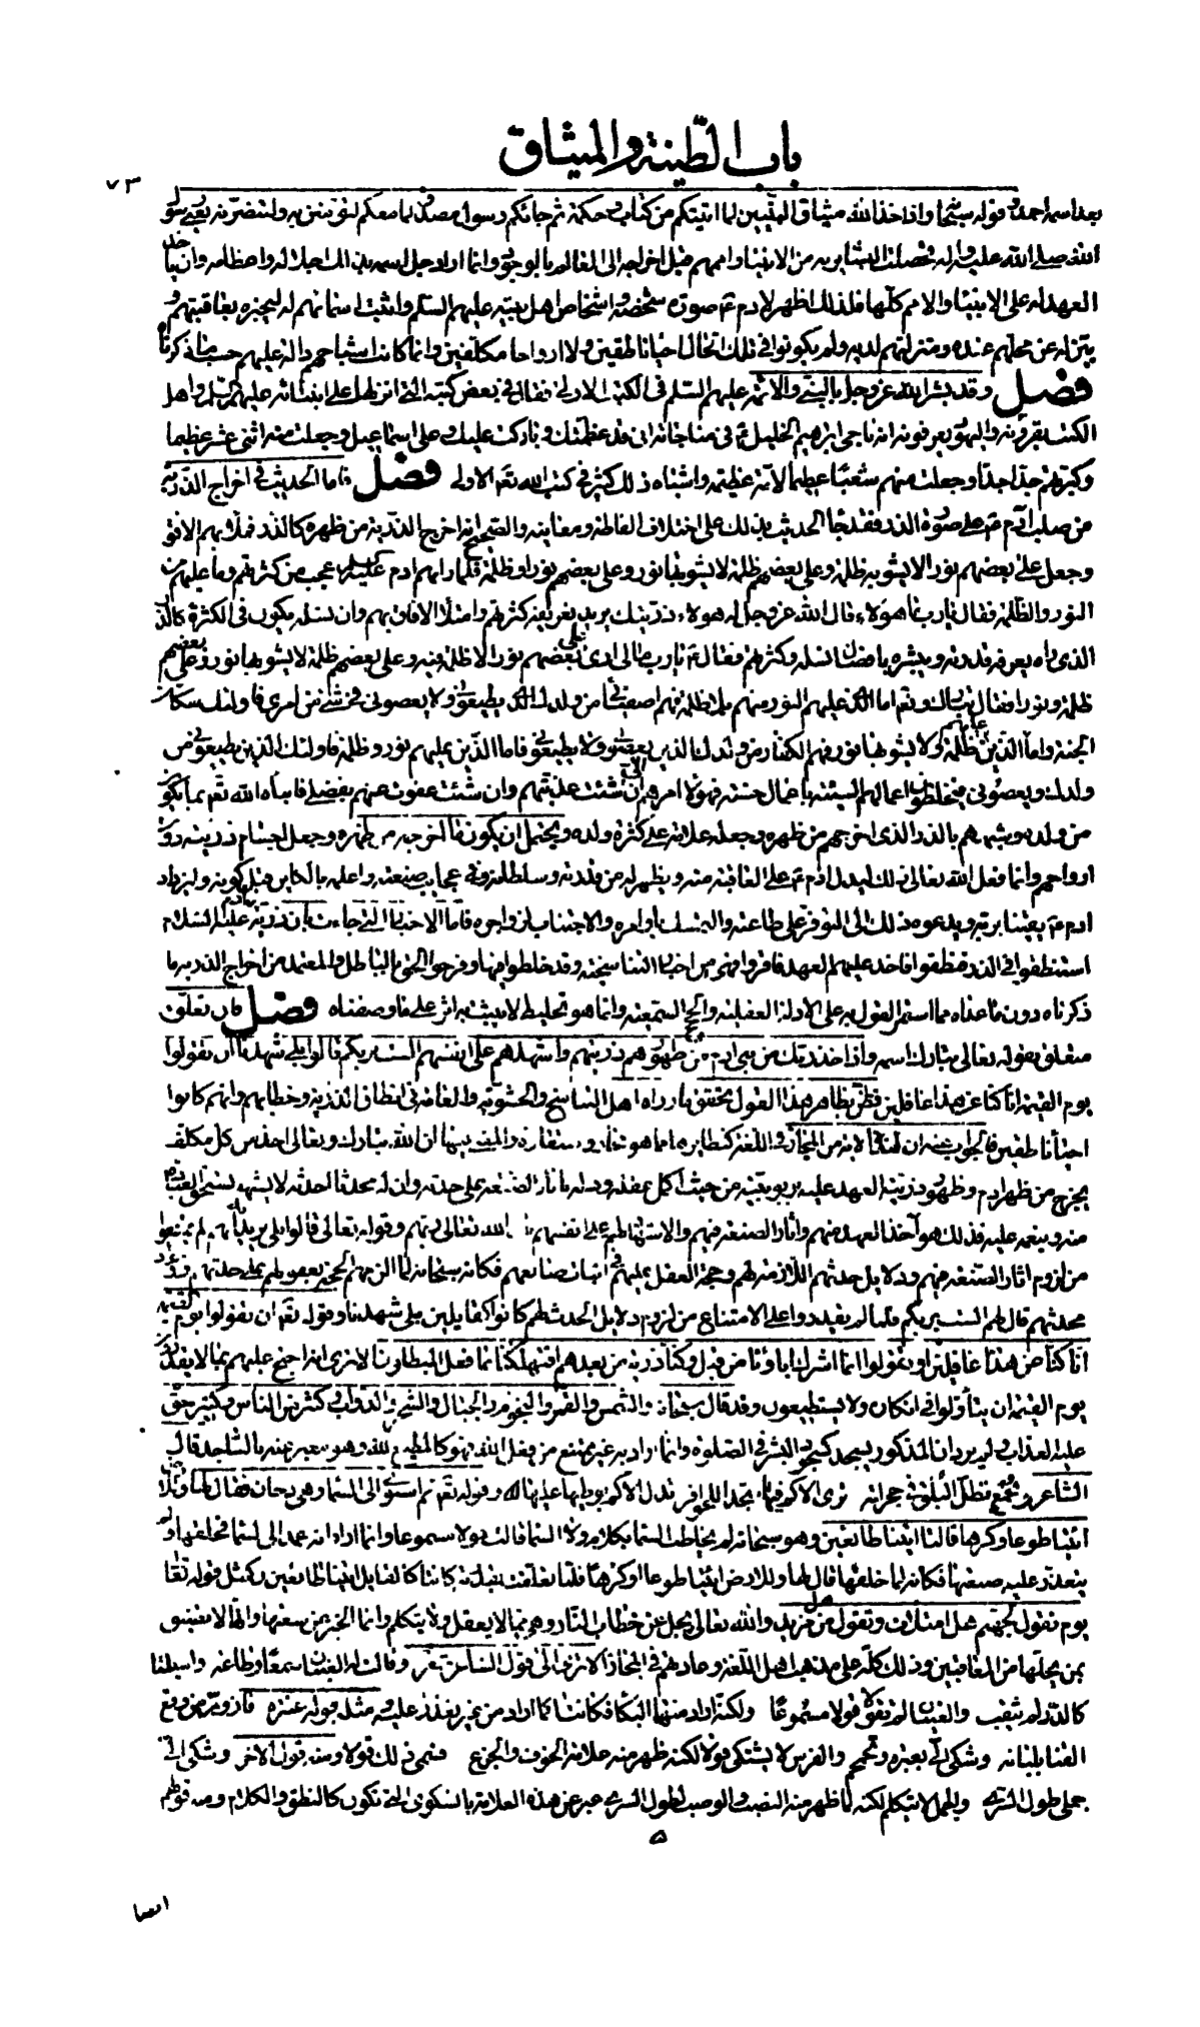 باب الطينة والميثاق
٧٣
بعد اسمه احمد وقوله سبحانه واذ اخذ الله ميثاق النبيين لما اتيتكم من كتاب وحكمة ثم جائكم رسول مصدق لما معكم لتؤمنن به ولتنصرنه يعنى رسول
الله صلى الله عليه واله فحصلت البشاير به من الانبياء واممهم قبل اخراجه الى العالم بالوجود وانما اراد جل اسمه بذلك اجلاله واعظامه وان ياخذ
العهد له على الانبياء والامم كلها فلذلك اظهر لادم ع صورة شخصه واشخاص اهل بيته عليهم السلم واثبت اسمائهم له ليخبره بعاقبتهم و
يبين له عن محلهم عنده ومنزلتهم لديه ولم يكونوا فى تلك الحال احياء ناطقين ولا ارواحا مكلفين وانما كانت اشباحهم دالة عليهم حسب ما ذكرناه
فصل وقد بشر الله عز وجل بالنبى والائمة عليهم السلم فى الكتب الاولى فقال فى بعض كتبه التى انزلها على انبيائه عليهم السلم واهل
الكتب يقرؤنه واليهود يعرفونه انه ناجى ابرهيم الخليل ع فى مناجاته انى قد عظمتك وباركت عليك وعلى اسماعيل وجعلت منه اثنى عشر عظيما
وكبرتهم جدا جدا وجعلت منهم شعبا عظيما لامة عظيمة واشباه ذلك كثير فى كتب الله تع الاولى فصل فاما الحديث فى اخراج الذرية
من صلب ادم ع على صورة الذر فقد جاء الحديث بذلك على اختلاف الفاظه ومعانيه والصحيح انه اخرج الذرية من ظهره كالذر فملأ بهم الافق
وجعل على بعضهم نورا لا يشوبه ظلمة وعلى بعضهم ظلمة لا يشوبها نور وعلى بعضهم نورا وظلمة فلما راهم ادم عليه السلم عجب من كثرتهم وما عليهم من
النور والظلمة فقال يا رب ما هؤلاء قال الله عز وجل له هؤلاء ذريتك يريد تعريفه كثرتهم وامتلاء الافاق بهم وان نسله يكون فى الكثرة كالذر
الذى راه ليعرفه قدرته ويبشره باتصال نسله وكثرتهم فقال ع يا رب مالى ارى على بعضهم نورا لا ظلمة فيه وعلى بعضهم ظلمة لا يشوبها نور وعلى بعضهم
ظلمة ونورا فقال تبارك وتع اما الذين عليهم النور منهم بلا ظلمة فهم اصفيائى من ولدك الذين يطيعونى ولا يعصونى فى شىء من امرى فاولئك سكان
الجنة واما الذين عليهم ظلمة لا يشوبها نور فهم الكفار من ولدك الذين يعصونى ولا يطيعونى فاما الذين عليهم نور وظلمة فاولئك الذين يطيعونى من
ولدك ويعصونى فيخلطون اعمالهم السيئة باعمال حسنة فهؤلاء امرهم الى ان شئت عذبتهم وان شئت عفوت عنهم بفضلى فانبأه الله تع بما يكون
من ولده وشبههم بالذر الذى اخرجهم من ظهره وجعله علامة على كثرة ولده ويحتمل ان يكون ما اخرجه من ظهره وجعل اجسام ذريته دون
ارواحهم وانما فعل الله تعالى ذلك ليدل ادم ع على العاقبة منه ويظهر له من قدرته وسلطانه وفى عجايب صنعته واعلمه بالكاين قبل كونه وليزداد
ادم ع يقينا بربه ويدعوه ذلك الى التوفر على طاعته والتمسك باوامره والاجتناب لزواجره فاما الاخبار التى جاءت بان ذرية ادم عليه السلام
استنطقوا فى الذر فنطقوا فاخذ عليهم العهد فاقروا فهى من اخبار التناسخية وقد خلطوا فيها ومزجوا الحق بالباطل والمعتمد من اخراج الذرية ما
ذكرناه دون ما عداه مما استمر القول به على الادلة العقلية والحجج السمعية وانما هو تخليط لا يثبت به اثر على ما وصفناه فصل فان تعلق
متعلق بقوله تعالى تبارك اسمه واذ اخذ ربك من بنى ادم من ظهورهم ذريتهم واشهدهم على انفسهم الست بربكم قالوا بلى شهدنا ان تقولوا
يوم القيمة انا كنا عن هذا غافلين فظن بظاهر هذا القول تحقق ما رواه اهل التناسخ والحشوية والعامة فى انطاق الذرية وخطابهم وانهم كانوا
احياء ناطقين فالجواب عنه ان لهذه الاية من المجاز فى اللغة كنظايرها مما هو مجاز واستعارة والمعنى فيها ان الله تبارك وتعالى اخذ من كل مكلف
يخرج من ظهر ادم وظهور ذريته العهد عليه بربوبيته من حيث اكمل عقله ودله باثار الصنعة على حدثه وان له محدثا احدثه لا يشبهه يستحق العبادة
منه بنعمه عليه فذلك هو اخذ العهد منهم واثار الصنعة فيهم والاشهاد لهم على انفسهم بان الله تعالى ربهم وقوله تعالى قالوا بلى يريد به انهم لم يمتنعوا
من لزوم اثار الصنعة فيهم ودلايل حدثهم اللازمة لهم وحجة العقل عليهم فى اثبات صانعهم فكانه سبحانه لما الزمهم الحجة بعقولهم على حدثهم ووجود
محدثهم قال لهم الست بربكم فلما لم يقدروا على الامتناع من لزوم دلايل الحدث لهم كانوا كقايلين بلى شهدنا وقوله تع ان تقولوا يوم القيمة
انا كنا عن هذا غافلين او تقولوا انما اشرك اباؤنا من قبل وكنا ذرية من بعدهم افتهلكنا بما فعل المبطلون الا ترى انه احتج عليهم بما لا يقدرون
يوم القيمة ان يتأولوا فى انكاره ولا يستطيعون وقد قال سبحانه والشمس والقمر والنجوم والجبال والشجر والدواب وكثير من الناس وكثير حق
عليه العذاب ولم يرد ان المذكور يسجد كسجود البشر فى الصلوة وانما اراد به غير ممتنع من فعل الله فهو كالمطيع لله وهو معبر عنه بالساجد قال
الشاعر بجمع تظل البلق فى حجراته ترى الاكم فيها سجدا للحوافر يريد ان الحوافر تذل الاكم بوطيها عليها وقوله تع ثم استوى الى السماء وهى دخان فقال لها وللارض
ائتيا طوعا او كرها قالتا اتينا طائعين وهو سبحانه لم يخاطب السماء بكلام ولا السماء قالت قولا مسموعا وانما اراد انه عمد الى السماء فخلقها ولم
يتعذر عليه صنعتها فكانه لما خلقها قال لها وللارض ائتيا طوعا او كرها فلما تعلقتا بقدرته كانتا كالقايل اتينا طائعين وكمثل قوله تعالى
يوم نقول لجهنم هل امتلات وتقول هل من مزيد والله تعالى يجل عن خطاب النار وهى مما لا يعقل ولا يتكلم وانما الخبر عن سعتها وانها لا تضيق
بمن يحلها من المعاقبين وذلك كله على مذهب اهل اللغة وعادتهم فى المجاز الا ترى الى قول الشاعر وقالت له العينان سمعا وطاعة واسبلتا
كالدر لم يثقب والعينان لم تقولا قولا مسموعا ولكنه اراد منهما البكاء فكانتا كما اراد من غير تعذر عليه ومثله قول عنترة فازور من وقع
القنا بلبانه وشكى الى بعبرة وتحمحم والفرس لا يشتكى قولا لكنه ظهر منه علامة الخوف والجزع فسمى ذلك قولا ومنه قول الاخر وشكى الى
جملى طول السرى والجمل لا يتكلم لكنه لما ظهر منه النصب والوصب لطول السرى عبر عن هذه العلامة بالشكوى التى تكون كالنطق والكلام ومنه قولهم
ايضا